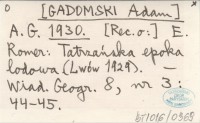 [GADOMSKI Adam]
A.G. 1930. [Rec. o:] E.
Romer: Tatrzańska epoka
lodowa (Lwów 1929). —
Wiad. Geogr. 8, nr 3:
44-45.